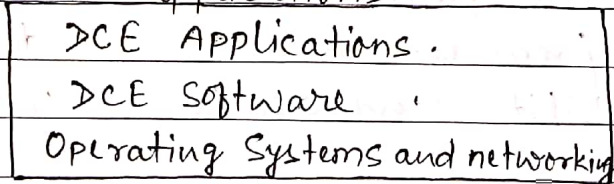 DCE Applications.
DCE Software
Operating Systems and networking